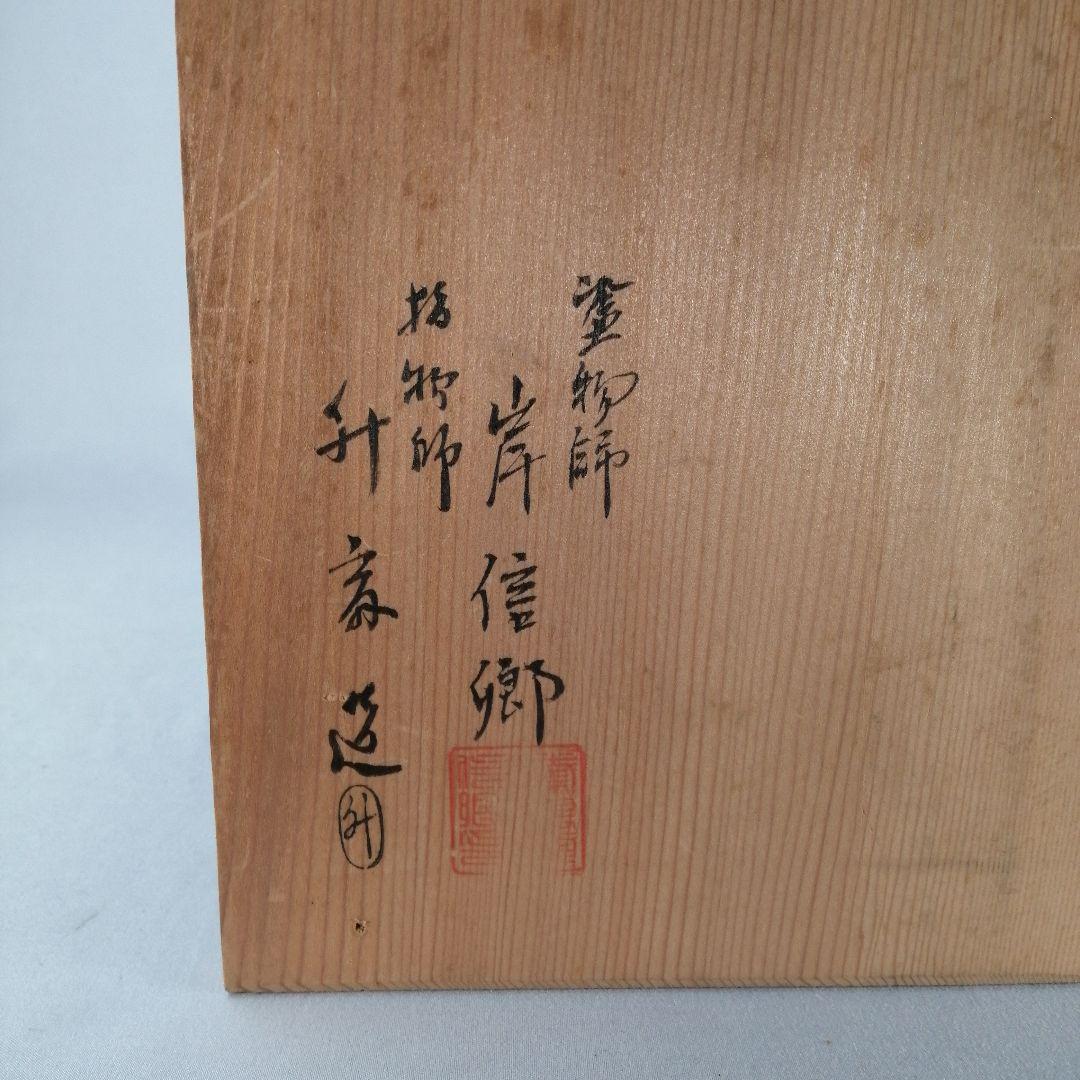 塗物師
岸信郷
指物師
升斎造
升